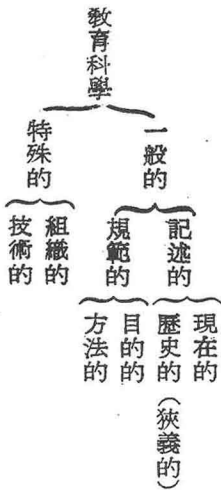 教育科學
一般的
特殊的
記述的
規範的
組織的
技術的
現在的
歷史的（狹義的）
目的的
方法的